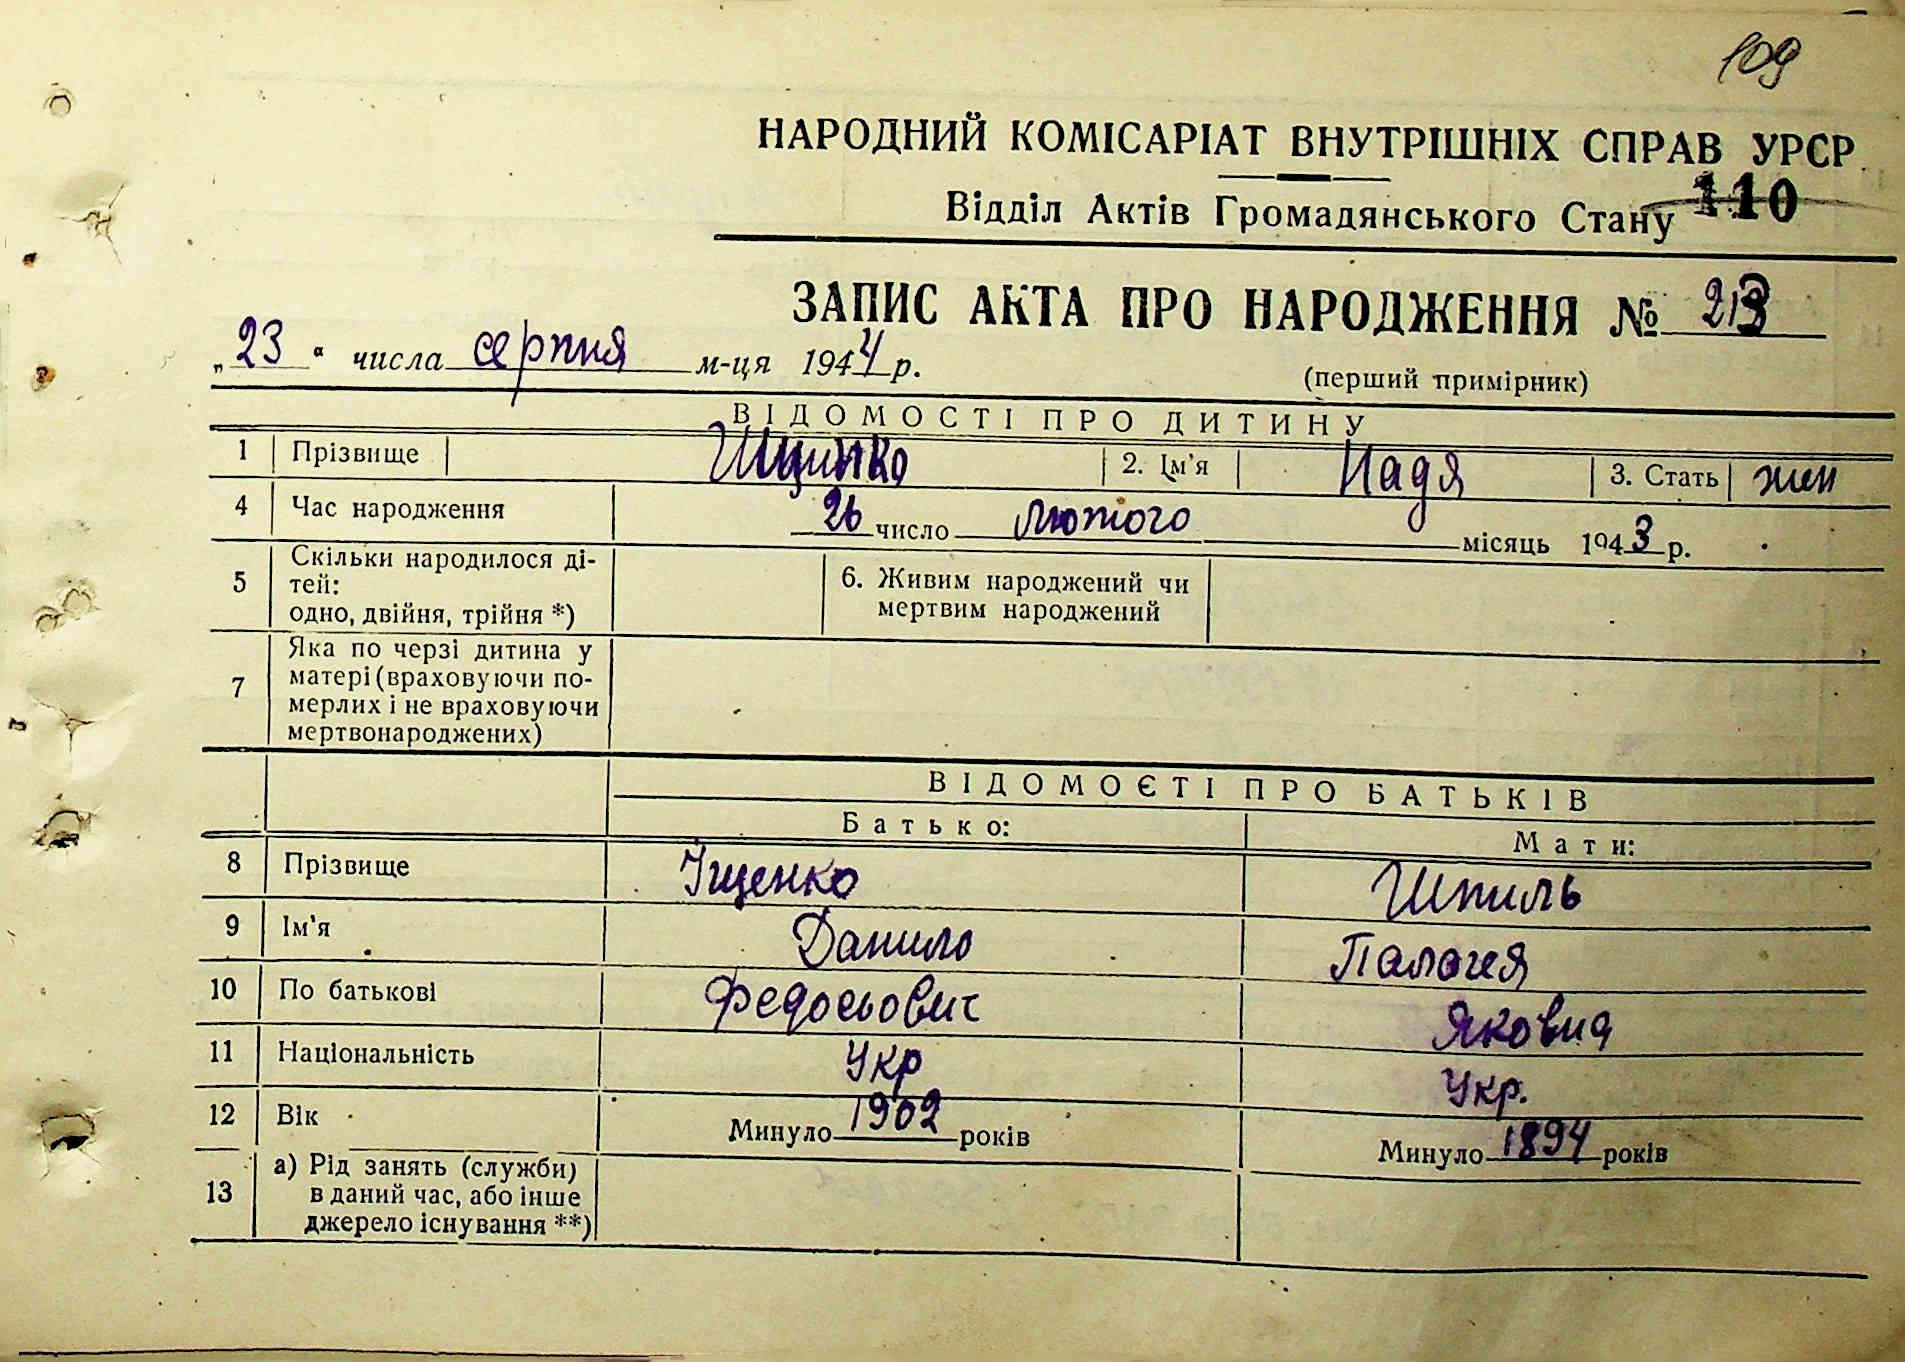 109
НАРОДНИЙ КОМІСАРІАТ ВНУТРІШНІХ СПРАВ УРСР
Відділ Актів Громадянського Стану 110
ЗАПИС АКТА ПРО НАРОДЖЕННЯ № 213
„23“ числа серпня м-ця 1944 р.
(перший примірник)
ВІДОМОСТІ ПРО ДИТИНУ
1 Прізвище 2. Ім'я Надя 3. Стать жен
4 Час народження 26 число лютого місяць 1943 р.
5 Скільки народилося ді-
тей:
одно, двійня, трійня *)
6. Живим народжений чи
мертвим народжений
7 Яка по черзі дитина у
матері (враховуючи по-
мерлих і не враховуючи
мертвонароджених)
ВІДОМОЄТІ ПРО БАТЬКІВ
Батько: Мати:
8 Прізвище Іщенко Шпиль
9 Ім'я Данило Палагия
10 По батькові Федосьович Яковна
11 Національність Укр Укр.
12 Вік Минуло 1902 років Минуло 1894 років
13 а) Рід занять (служби)
в даний час, або інше
джерело існування **)